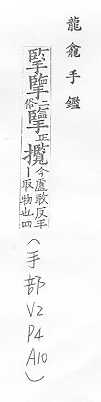 龍龕手鑑
㩜𢺖俗二擥正攬今盧敢反手
丨取物也四
(手部
V2
P4
A10)